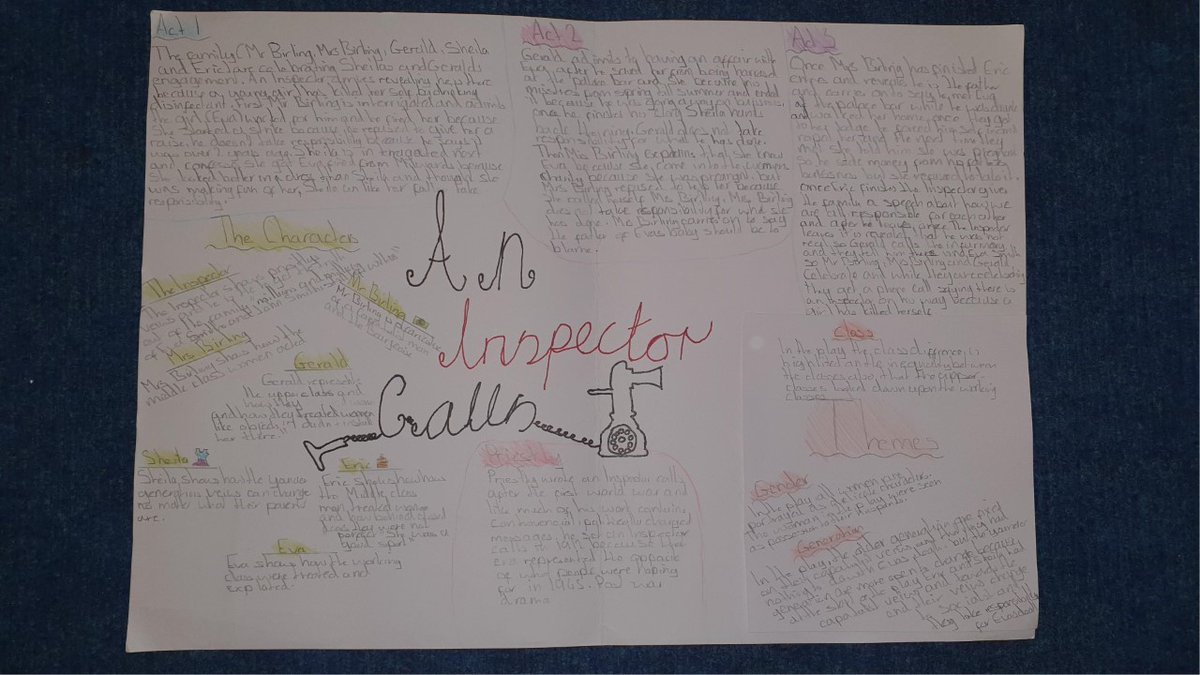 Act 1
The family (Mr Birling, Mrs Birling, Gerald, Sheila
and Eric) are celebrating Sheilas and Geralds
engagement. An Inspector arrives revealing he is there
because a young girl has killed her self by drinking
disinfectant. First Mr Birling is interrogated and admits
the girl (Eva) worked for him and he fired her because
she started a strike because he refused to give her a
raise, he doesn't take responsibility because he says it
was over 2 years ago. Sheila is interrogated next
and confesses she got Eva fired from Milwards because
she looked better in a dress than Sheila and thought she
was making fun of her, Sheila unlike her father take
responsibility.
Act 2
Gerald admits to having an affair with
Eva after he saved her from being harassed
at the palace bar and she became his
mistress from spring till summer and ended
it because he was going away on business.
once he finishes his story Sheila hands
back the ring. Gerald does not take
responsibility for what he has done.
Then Mrs Birling explains that she knew
Eva because she came into the womens
charity because she was pregnant, but
Mrs Birling refused to help her because
she called herself Mrs Birling. Mrs Birling
does not take responsibility for what she
has done. Mrs Birling carries on to say
the father of Evas baby should be to
blame.
Act 3
Once Mrs Birling has finished Eric
enters and reveals he is the father
and carries on to say he met Eva
at the palace bar when he was drunk
and walked her home, once they got
to her lodge he forced himself
The next time they
met she told him she was pregnant
so he stole money from his fathers
business but she refused to take it.
Once Eric finishes the Inspector gives
the family a speech about how we
are all responsible for each other
and after he leaves, once the Inspector
leaves it is revealed that he was not
real, so Gerald calls the infirmary
and they tell him there
so Mr Birling, Mrs Birling and Gerald
celebrate and while they are celebrating
they get a phone call saying there is
an Inspector on his way because a
girl has killed herself
The Characters
The Inspector
The Inspector is Priestly
Mr Birling
Mrs Birling
Mrs Birling shows how the
middle class women acted
Gerald
Gerald represents
the upper class and
how they
and how they treated women
like objects, "I didn't install
her there"
An
Inspector
Calls
Sheila
Sheila shows how the younger
generations views can change
no matter what their parents
are.
Eric
Eric shows how
the Middle class
men treated women
and how behind closed
doors they were not
perfect "She was a
good sport"
Eva
Eva shows how the working
class were treated and
exploited
Priestly
Priestly wrote an Inspector calls
after the first world war and
like much of his work contain
politically charged
messages, he set an Inspector
calls in 1912 because that
era represented the opposite
of what people were hoping
for in 1945.
drama
Class
In the play the class difference is
highlighted in the inequality between
the classes and that the upper
classes looked down upon the working
classes
Themes
Gender
In the play all women are
portrayed as delicate characters.
as possessions
Generation
In the play, the older generation are fixed
on their capitalist views and they had
nothing to do with Evas death, but the younger
generation are more open to change because
at the start of the play Eric and Sheila had
capitalist values
and their values change
to socialist and
they take responsibility
for Evas death